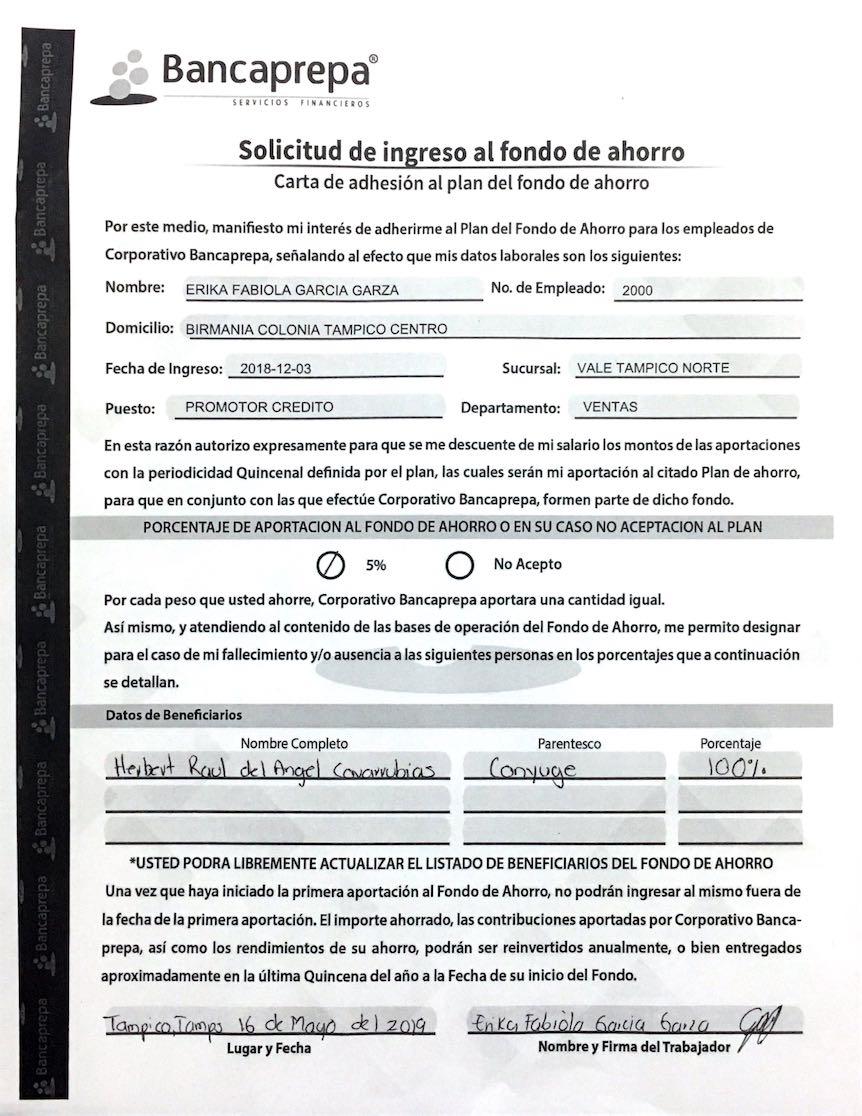 Bancaprepa®
SERVICIOS FINANCIEROS
Solicitud de ingreso al fondo de ahorro
Carta de adhesión al plan del fondo de ahorro
Por este medio, manifiesto mi interés de adherirme al Plan del Fondo de Ahorro para los empleados de
Corporativo Bancaprepa, señalando al efecto que mis datos laborales son los siguientes:
Nombre: ERIKA FABIOLA GARCIA GARZA No. de Empleado: 2000
Domicilio: BIRMANIA COLONIA TAMPICO CENTRO
Fecha de Ingreso: 2018-12-03 Sucursal: VALE TAMPICO NORTE
Puesto: PROMOTOR CREDITO Departamento: VENTAS
En esta razón autorizo expresamente para que se me descuente de mi salario los montos de las aportaciones
con la periodicidad Quincenal definida por el plan, las cuales serán mi aportación al citado Plan de ahorro,
para que en conjunto con las que efectúe Corporativo Bancaprepa, formen parte de dicho fondo.
PORCENTAJE DE APORTACION AL FONDO DE AHORRO O EN SU CASO NO ACEPTACION AL PLAN
5% No Acepto
Por cada peso que usted ahorre, Corporativo Bancaprepa aportara una cantidad igual.
Así mismo, y atendiendo al contenido de las bases de operación del Fondo de Ahorro, me permito designar
para el caso de mi fallecimiento y/o ausencia a las siguientes personas en los porcentajes que a continuación
se detallan.
Datos de Beneficiarios
Nombre Completo Parentesco Porcentaje
Herbert Raul del Angel Covarrubias Conyuge 100%
*USTED PODRA LIBREMENTE ACTUALIZAR EL LISTADO DE BENEFICIARIOS DEL FONDO DE AHORRO
Una vez que haya iniciado la primera aportación al Fondo de Ahorro, no podrán ingresar al mismo fuera de
la fecha de la primera aportación. El importe ahorrado, las contribuciones aportadas por Corporativo Banca-
prepa, así como los rendimientos de su ahorro, podrán ser reinvertidos anualmente, o bien entregados
aproximadamente en la última Quincena del año a la Fecha de su inicio del Fondo.
Tampico, Tamps 16 de Mayo del 2019 Erika Fabiola Garcia Garza
Lugar y Fecha Nombre y Firma del Trabajador
Bancaprepa
Bancaprepa
Bancaprepa
Bancaprepa
Bancaprepa
Bancaprepa
Bancaprepa
Bancaprepa
Bancaprepa